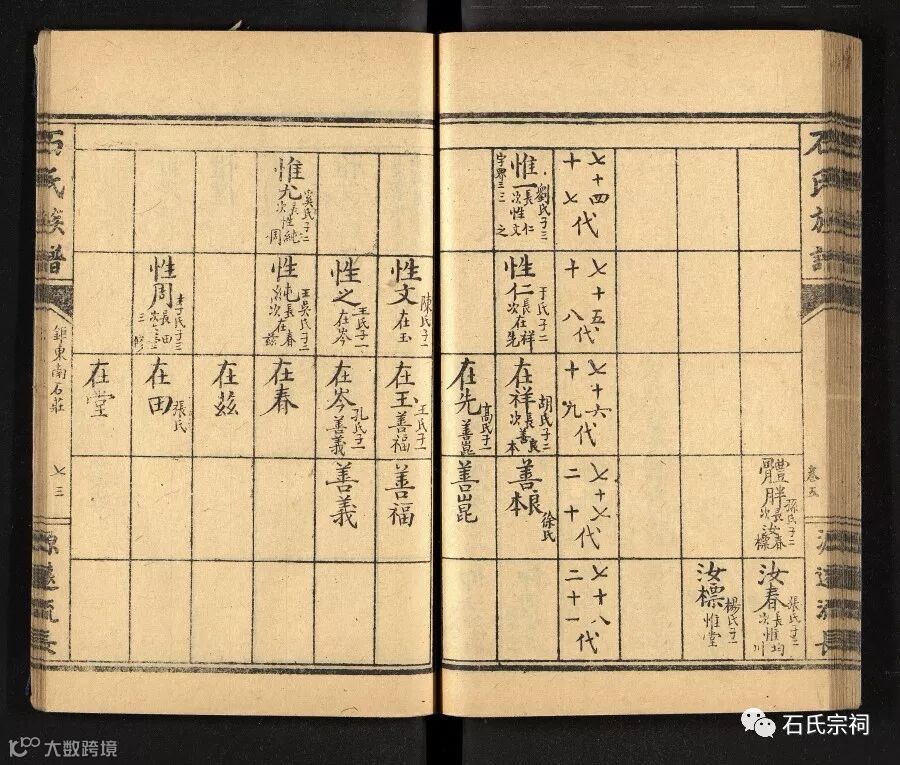 石氏族譜
卷五
源遠流長
體胖 孫氏子二
長汝春
次汝標
汝春 張氏子二
長惟均
次惟川
汝標 楊氏子一
惟堂
七十四 十七代
七十五 十八代
七十六 十九代
七十七 二十代
七十八 二十一代
惟一 劉氏子三
長性仁
次性文
三之
性仁 于氏子二
長在祥
次在先
在祥 胡氏子二
長善良
次善本
善良 徐氏
善本
在先 高氏子一
善崑
善崑
性文 陳氏子一
在玉
在玉 王氏子一
善福
善福
性之 王氏子一
在岑
在岑 孔氏子一
善義
善義
惟尤 奚氏子二
長性純
次性周
性純 王吳氏子二
長在春
次在茲
在春
在茲
性周
長在田
在田 張氏
在堂
石氏族譜
鉅東南石莊
七三
源遠流長
石氏宗祠
大数跨境